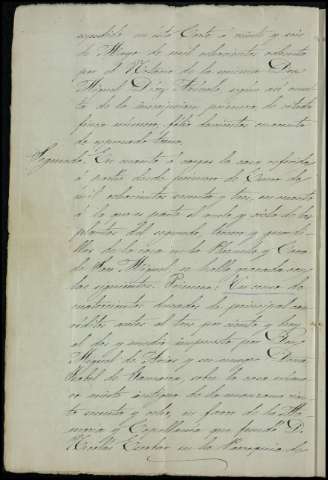 expedida en esta Corte á veinte y seis
de Mayo de mil ochocientos ochenta
por el Notario de la misma Don
Miguel Diaz Arévalo según así consta
de la inscripcion primera de citada
finca número, folio doscientos cuarenta
de expresado tomo.
Segundo: En cuanto á cargas la casa referida
á partir desde primero de Enero de
mil ochocientos sesenta y tres, en cuanto
á la que es parte el suelo y vista de las
plantas del segundo, tercero y guardi-
llas de la casa en la Plazuela y Cava
de San Miguel se halla gravada con
las siguientes. Primera: Un censo de
cuatrocientos ducados de principal con
réditos antes al tres por ciento y hoy
al dos y medio impuesto por Don
Miguel de Arias y su muger Doña
Isabel de Gamarra, sobre la casa número
veinte antiguo de la manzana cien-
to setenta y ocho, en favor de la Me-
moria y Capellanía que fundó D.
Nicolás Escobar en la Parroquia de